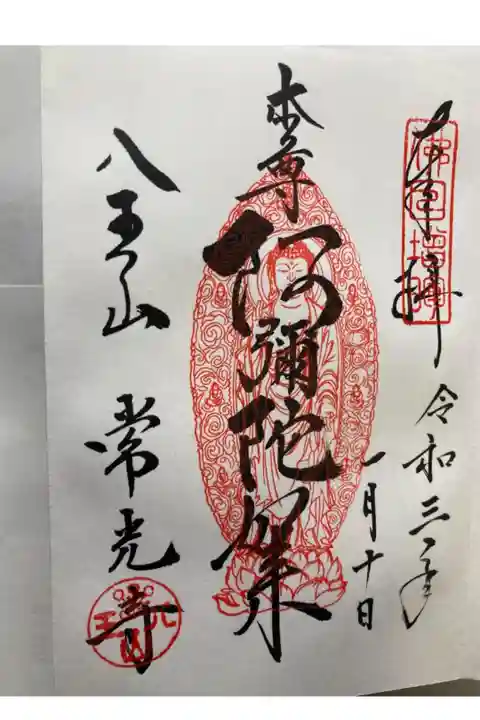 奉拝
令和三年
一月十日
本尊
阿彌陀如来
八王山
常光寺
八王山